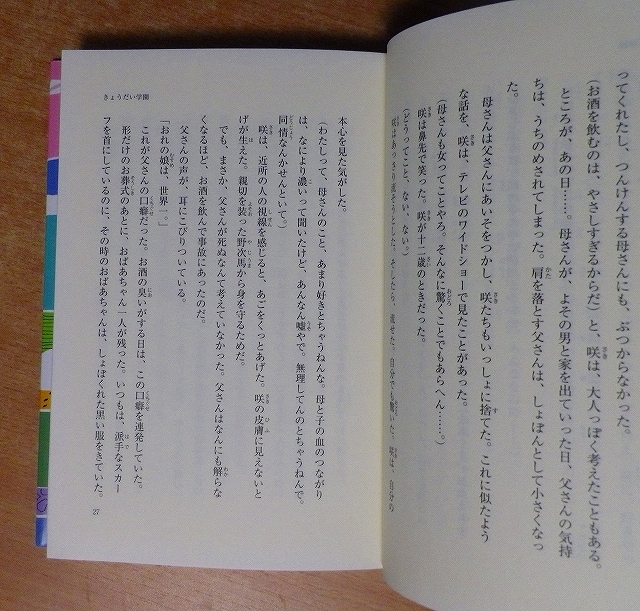 ってくれたし、つんけんする母さんにも、ぶつからなかった。
（お酒を飲むのは、やさしすぎるからだ）と、咲は、大人っぽく考えたこともある。
ところが、あの日……。母さんが、よその男と家を出ていった日、父さんの気持
ちは、うちのめされてしまった。肩を落とす父さんは、しょぼんとして小さくなっ
た。
母さんは父さんにあいそをつかし、咲たちもいっしょに捨てた。これに似たよう
な話を、咲は、テレビのワイドショーで見たことがあった。
（母さんも女ってことやろ。そんなに驚くことでもあらへん……。）
咲は鼻先で笑った。咲が十二歳のときだった。
（どうってこと、ない、ない。）
咲はあっさり流そうとした。そしたら、流せた。自分でも驚いた。咲は、自分の
きょうだい学園
本心を見た気がした。
（わたしって、母さんのこと、あまり好きとちゃうねんな。母と子の血のつながり
は、なにより濃いって聞いたけど、あんなん嘘やで。無理してんのとちゃうねんで。
同情なんかせんといて。）
咲は、近所の人の視線を感じると、あごをくっとあげた。咲の皮膚に見えないと
げが生えた。親切を装った野次馬から身を守るためだ。
でも、まさか、父さんが死ぬなんて考えていなかった。父さんはなんにも解らな
くなるほど、お酒を飲んで事故にあったのだ。
父さんの声が、耳にこびりついている。
「おれの娘は、世界一。」
これが父さんの口癖だった。お酒の臭いがする日は、この口癖を連発していた。
形だけのお葬式のあとに、おばあちゃん一人が残った。いつもは、派手なスカー
フを首にしているのに、その時のおばあちゃんは、しょぼくれた黒い服をきていた。
27